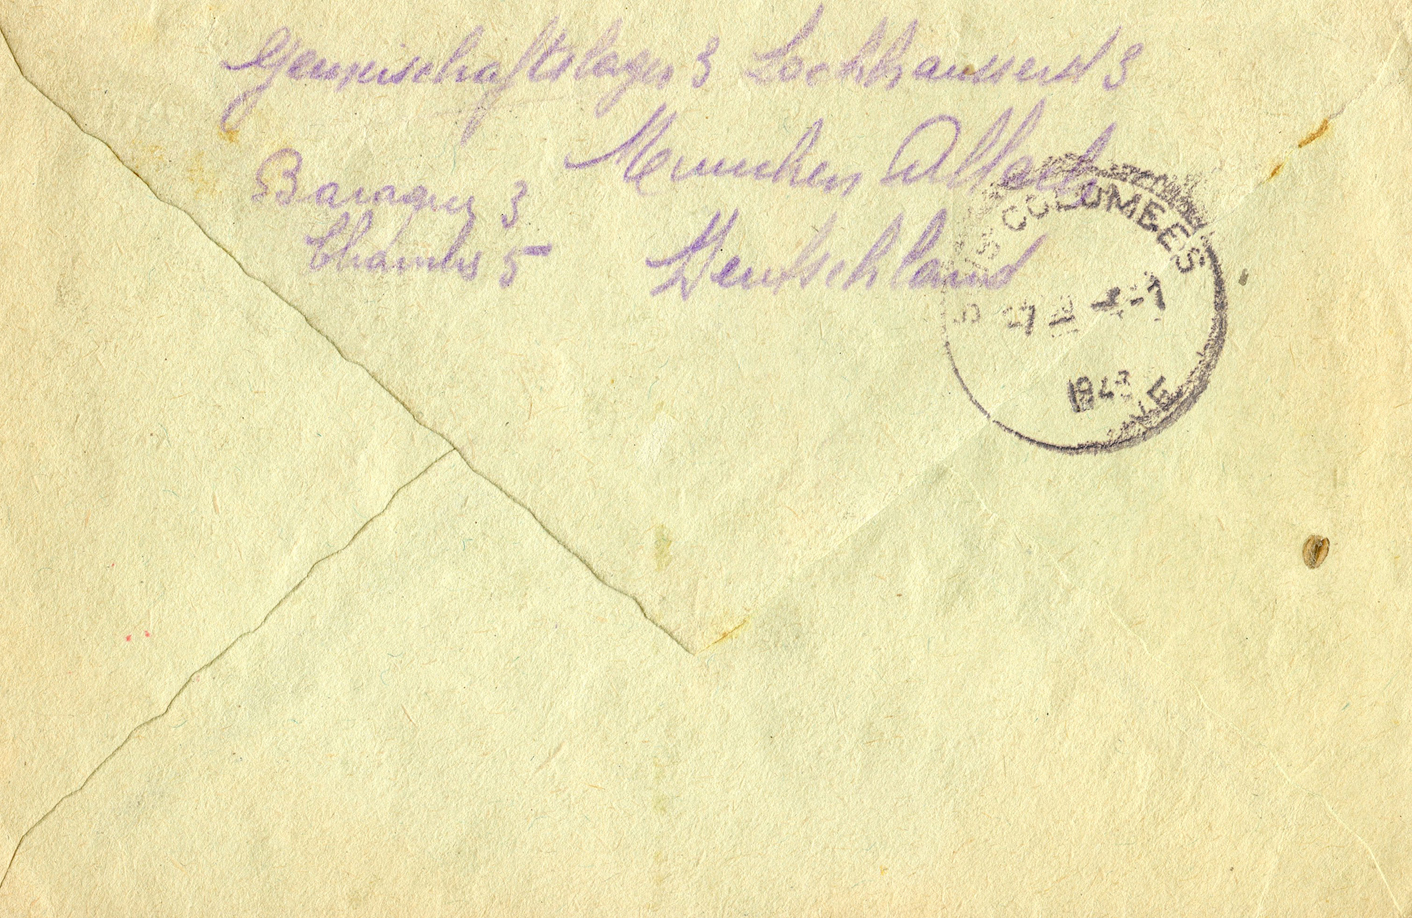 Gemeischaftslager 3 Lochhausserst 3
Menunchen Allach
Baraque 3
Chambs 5 Deutschland
COLOMBES
1943